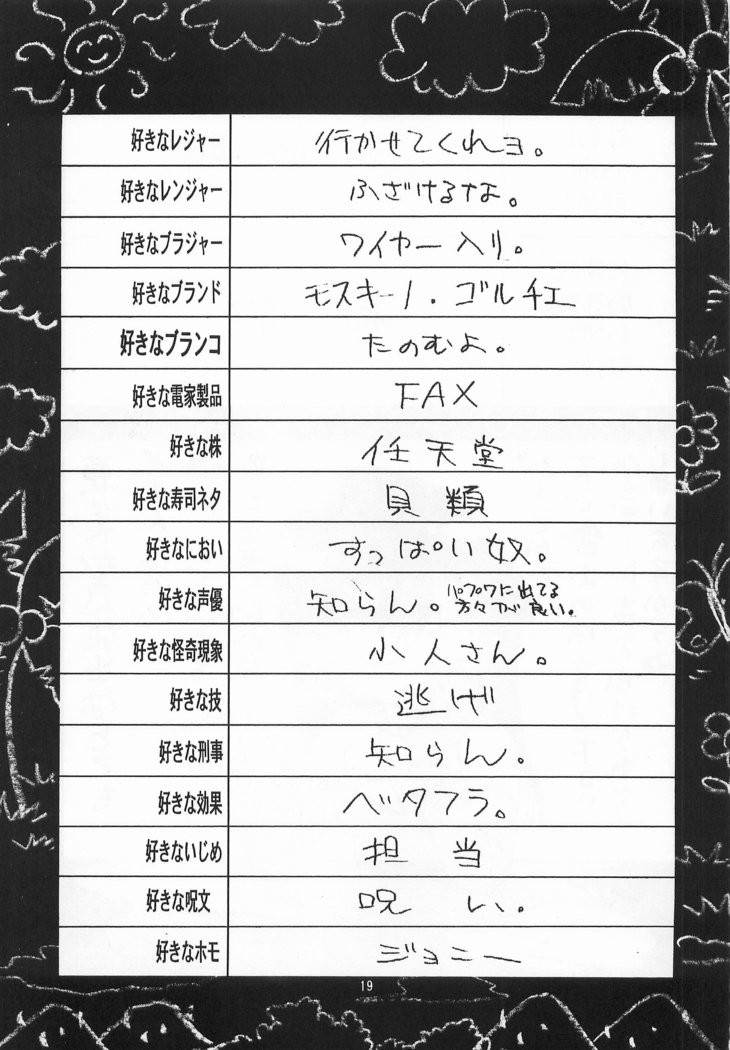 好きなレジャー 行かせてくれヨ。
好きなレンジャー ふざけるな。
好きなブラジャー ワイヤー入り。
好きなブランド モスキーノ・ゴルチエ
好きなブランコ たのむよ。
好きな電家製品 FAX
好きな株 任天堂
好きな寿司ネタ 貝類
好きなにおい すっぱい奴。
好きな声優 知らん。パプワに出てる
方々が良い。
好きな怪奇現象 小人さん。
好きな技 逃げ
好きな刑事 知らん。
好きな効果 ベタフラ。
好きないじめ 担当
好きな呪文 呪い。
好きなホモ ジョニー
19